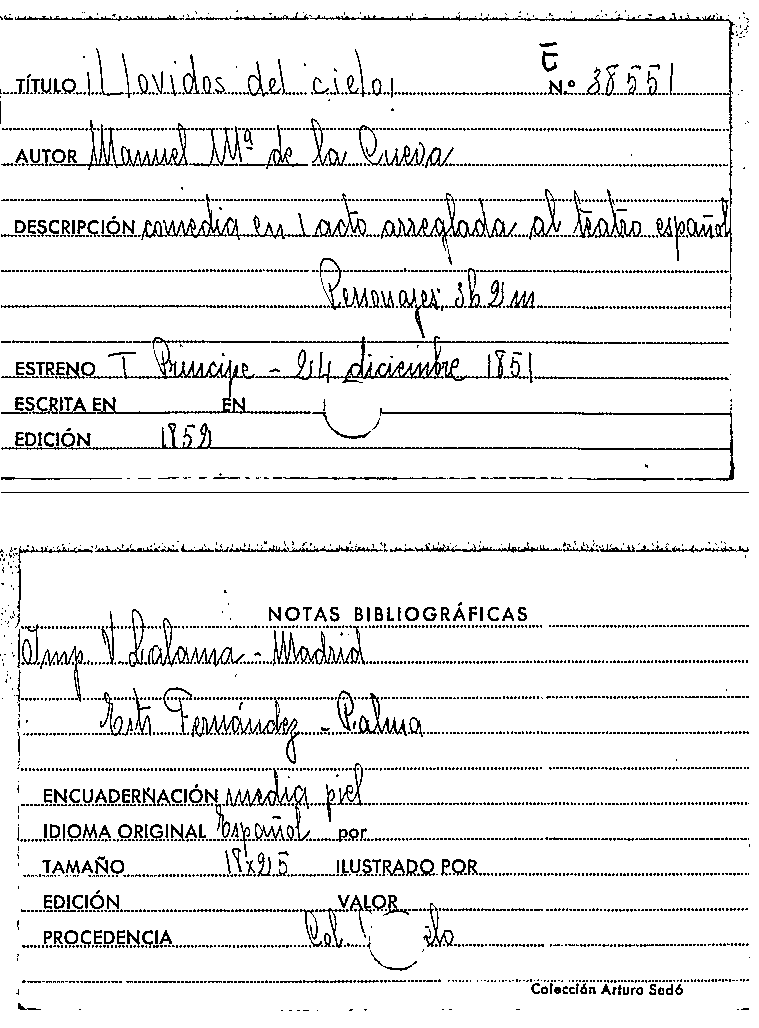 E
TÍTULO ¡Llovidos del cielo! N.° 38551
AUTOR Manuel Mª de la Cueva
DESCRIPCIÓN comedia en 1 acto arreglada al teatro español
Personajes, 3h 2m
ESTRENO T Principe - 24 diciembre 1851
ESCRITA EN EN
EDICIÓN 1852
NOTAS BIBLIOGRÁFICAS
Imp V Lalama - Madrid
Estr Fernández - Palma
ENCUADERNACIÓN media piel
IDIOMA ORIGINAL Español por
TAMAÑO 18x25 ILUSTRADO POR
EDICIÓN VALOR
PROCEDENCIA Col.
Colección Arturo Sedó